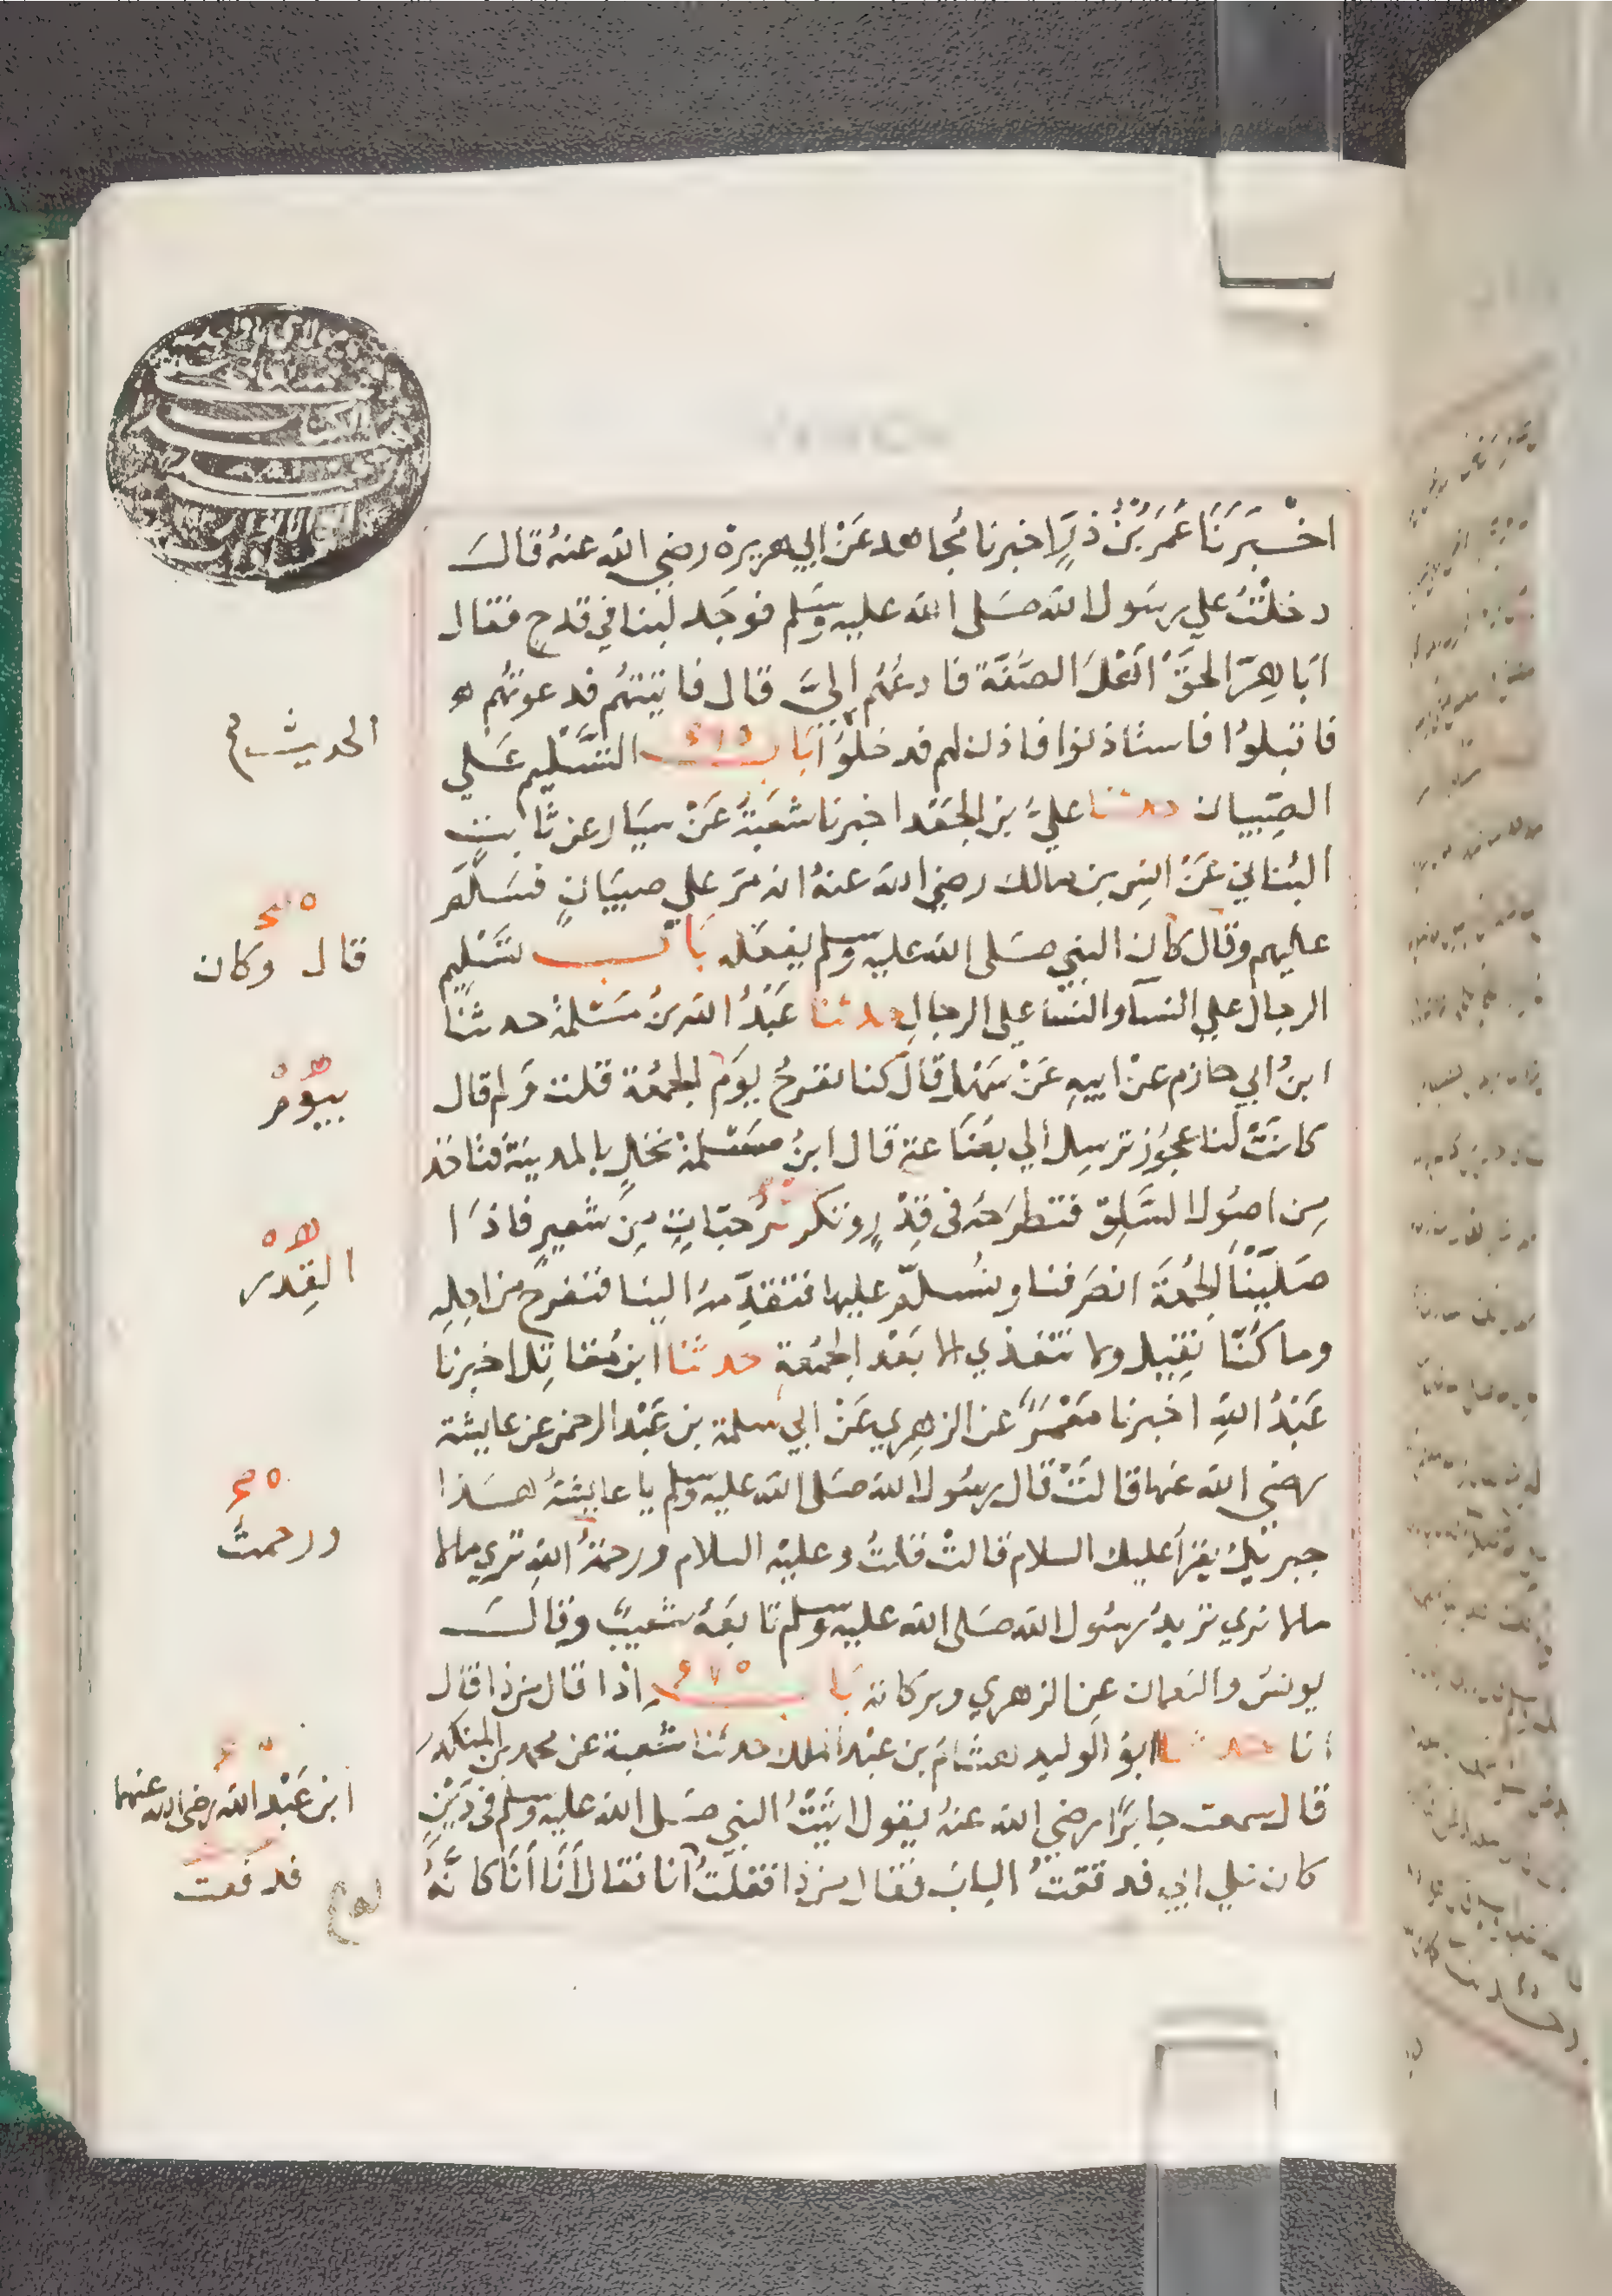 اخْبَرَنَا عُمَرُ بْنُ ذَرٍّ اخبرنا مُجاهد عَنْ ابي هريرة رضي الله عنهُ قالَ
دخلْتُ علي رسَول الله صَلى الله عليه وسَلم فوجَد لبنا في قدحٍ فقال
اَبَا هِرٍّ الحقْ اَهْلَ الصُّفَّة فادعُهُم اِليَّ قال فاتيتهُم فدعوتهُم
فاقبلوُا فاستاذنوا فاذن لهم فدخلوُا بَابُ التَّسْلِيم عَلي
الصِّبيان حدثنا عليُّ بن الجَعْد اخبرنا شعْبَةُ عَنْ سيَّار عن ثابتٍ
البُناني عَنْ انسِ بن مالك رضي الله عنهُ انه مَرّ علي صبيَانٍ فسَلَّم
عليهم وقال كان النبي صَلى الله عليه وسلم يفعَله بَابُ تَسْلِيم
الرجال علي النسآ والنسَا علي الرجالِ حدثنا عَبْدُ الله بنُ مَسْلمةَ حدثنا
ابنُ ابي حازم عنْ ابيهِ عَنْ سَهْل قال كنا نفرحُ بيَوم الجمُعة قلت ولِم قال
كانتْ لنا عجُوز ترسِل الي بضَاعة قال ابنُ مسْلمةَ نخلٍ بالمدينة فتاخذ
مِن اصُول السِّلقِ فتطرَحهُ في قِدْرٍ وتكركرُ حبّاتٍ مِنْ شعيرٍ فاذا
صَلّيْنا الجُمعَةَ انصَرفنا ونُسلّم عليها فتقدّمهُ الينا فنفرح من اجلِهِ
وما كُنّا نقِيل ولا نتغذي الا بَعْد الجمُعةِ حدثنا ابن مُقاتِل اخبرنا
عَبْدُ اللهِ اخبرنا مَعْمَرٌ عن الزهِري عَنْ ابي سلمة بن عَبْد الرحمن عن عايشة
رضي الله عنها قالتْ قال رسُول الله صَلى الله عليه وسلم يا عايشةُ هَذا
جبرئيل يقرأ عليك السلام قالتْ قلتُ وعليْه السلام ورحمةُ اللهِ تري مالا
مالا نري تريدُ رسُول الله صَلى الله عليه وسلم تابَعَهُ شعيبٌ وقالَ
يونسُ والنعمان عن الزهري وبركاته بَابُ اذا قال من ذا قال
انا حدثنا ابو الوليد هشامُ بن عبْد الملك حدثنا شُعبة عن محمد بن المنكدر
قال سمعت جابرًا رضي الله عنهُ يقول اتيْتُ النبي صَلى الله عليه وسلم في دَيْنٍ
كان علي ابي فدققتُ البابَ فقال من ذا فقلتُ انا فقال أَنَا أَنَا كانّهُ
الحديث
قال وكان
بيَوْمِ
القِدْرِ
ورحمتُ
ابن عَبْد الله رضي الله عنهما
فدفعت